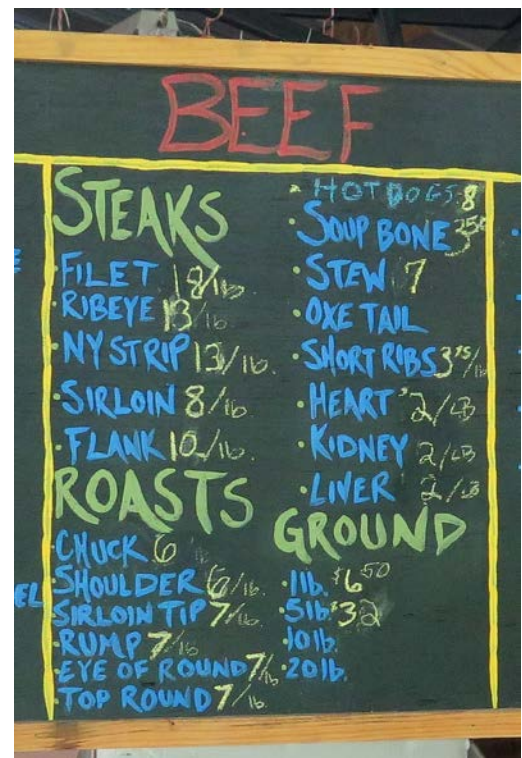 BEEF
STEAKS
FILET 18/lb.
RIBEYE 13/lb
NY STRIP 13/lb.
SIRLOIN 8/lb.
FLANK 10/lb.
ROASTS
CHUCK 6
SHOULDER 6/lb.
SIRLOIN TIP 7/lb.
RUMP 7/lb
EYE OF ROUND 7/lb
TOP ROUND 7/lb.
HOT DOGS 8
SOUP BONE 3.50
STEW 7
OXE TAIL
SHORT RIBS 3.75/lb
HEART 2/LB
KIDNEY 2/LB
LIVER 2/LB
GROUND
1lb. $6.50
5lb. $32
10lb.
20lb.
EL